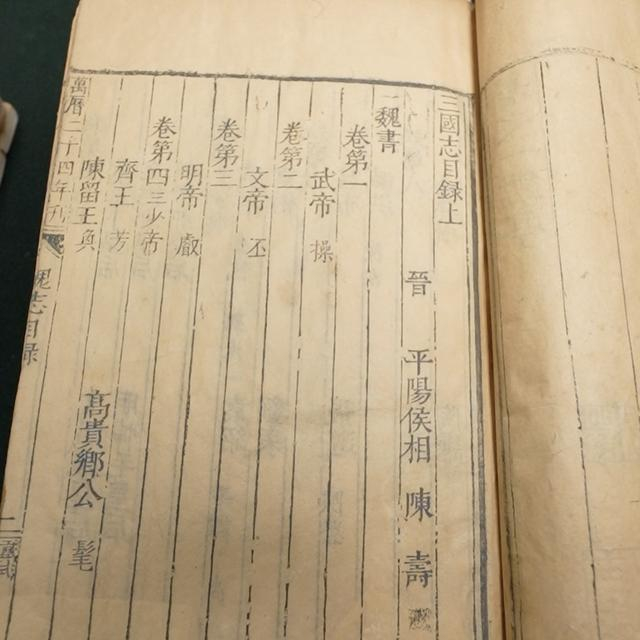 三國志目錄上
晉 平陽侯相 陳壽
魏書
卷第一
武帝 操
卷第二
文帝 丕
卷第三
明帝 叡
卷第四三少帝
齊王 芳 高貴鄉公 髦
陳留王奐
萬曆二十四年
魏志目錄